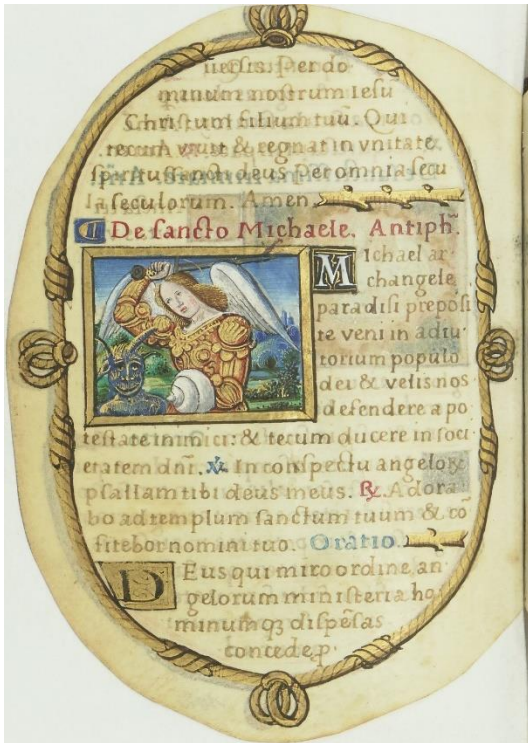 uersis. Per do
minum nostrum Iesū
Christum filium tuū. Qui
tecum viuit & regnat in vnitate
spiritus sancti deus Per omnia secu
la seculorum. Amen.
De sancto Michaele. Antiph̄.
Michael ar
changele
paradisi preposi
te veni in adiu
torium populo
dei & velis nos
defendere a po
testate inimici: & tecum ducere in soci
etatem dñi. ℣ In conspectu angeloꝝ
psallam tibi deus meus. ℟ Adora
bo ad templum sanctum tuum & cō
fitebor nomini tuo. Oratio.
DEus qui miro ordine an
gelorum ministeria ho
minumqꝫ dispēsas
concede p